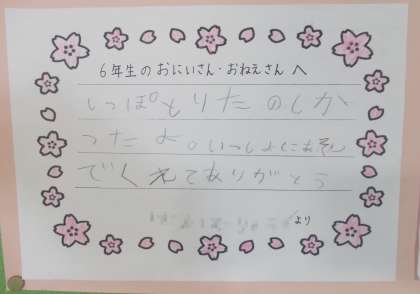 6年生のおにいさん・おねえさんへ
しっぽとりたのしか
ったよ。いっしょにあそん
でくれてありがとう
より